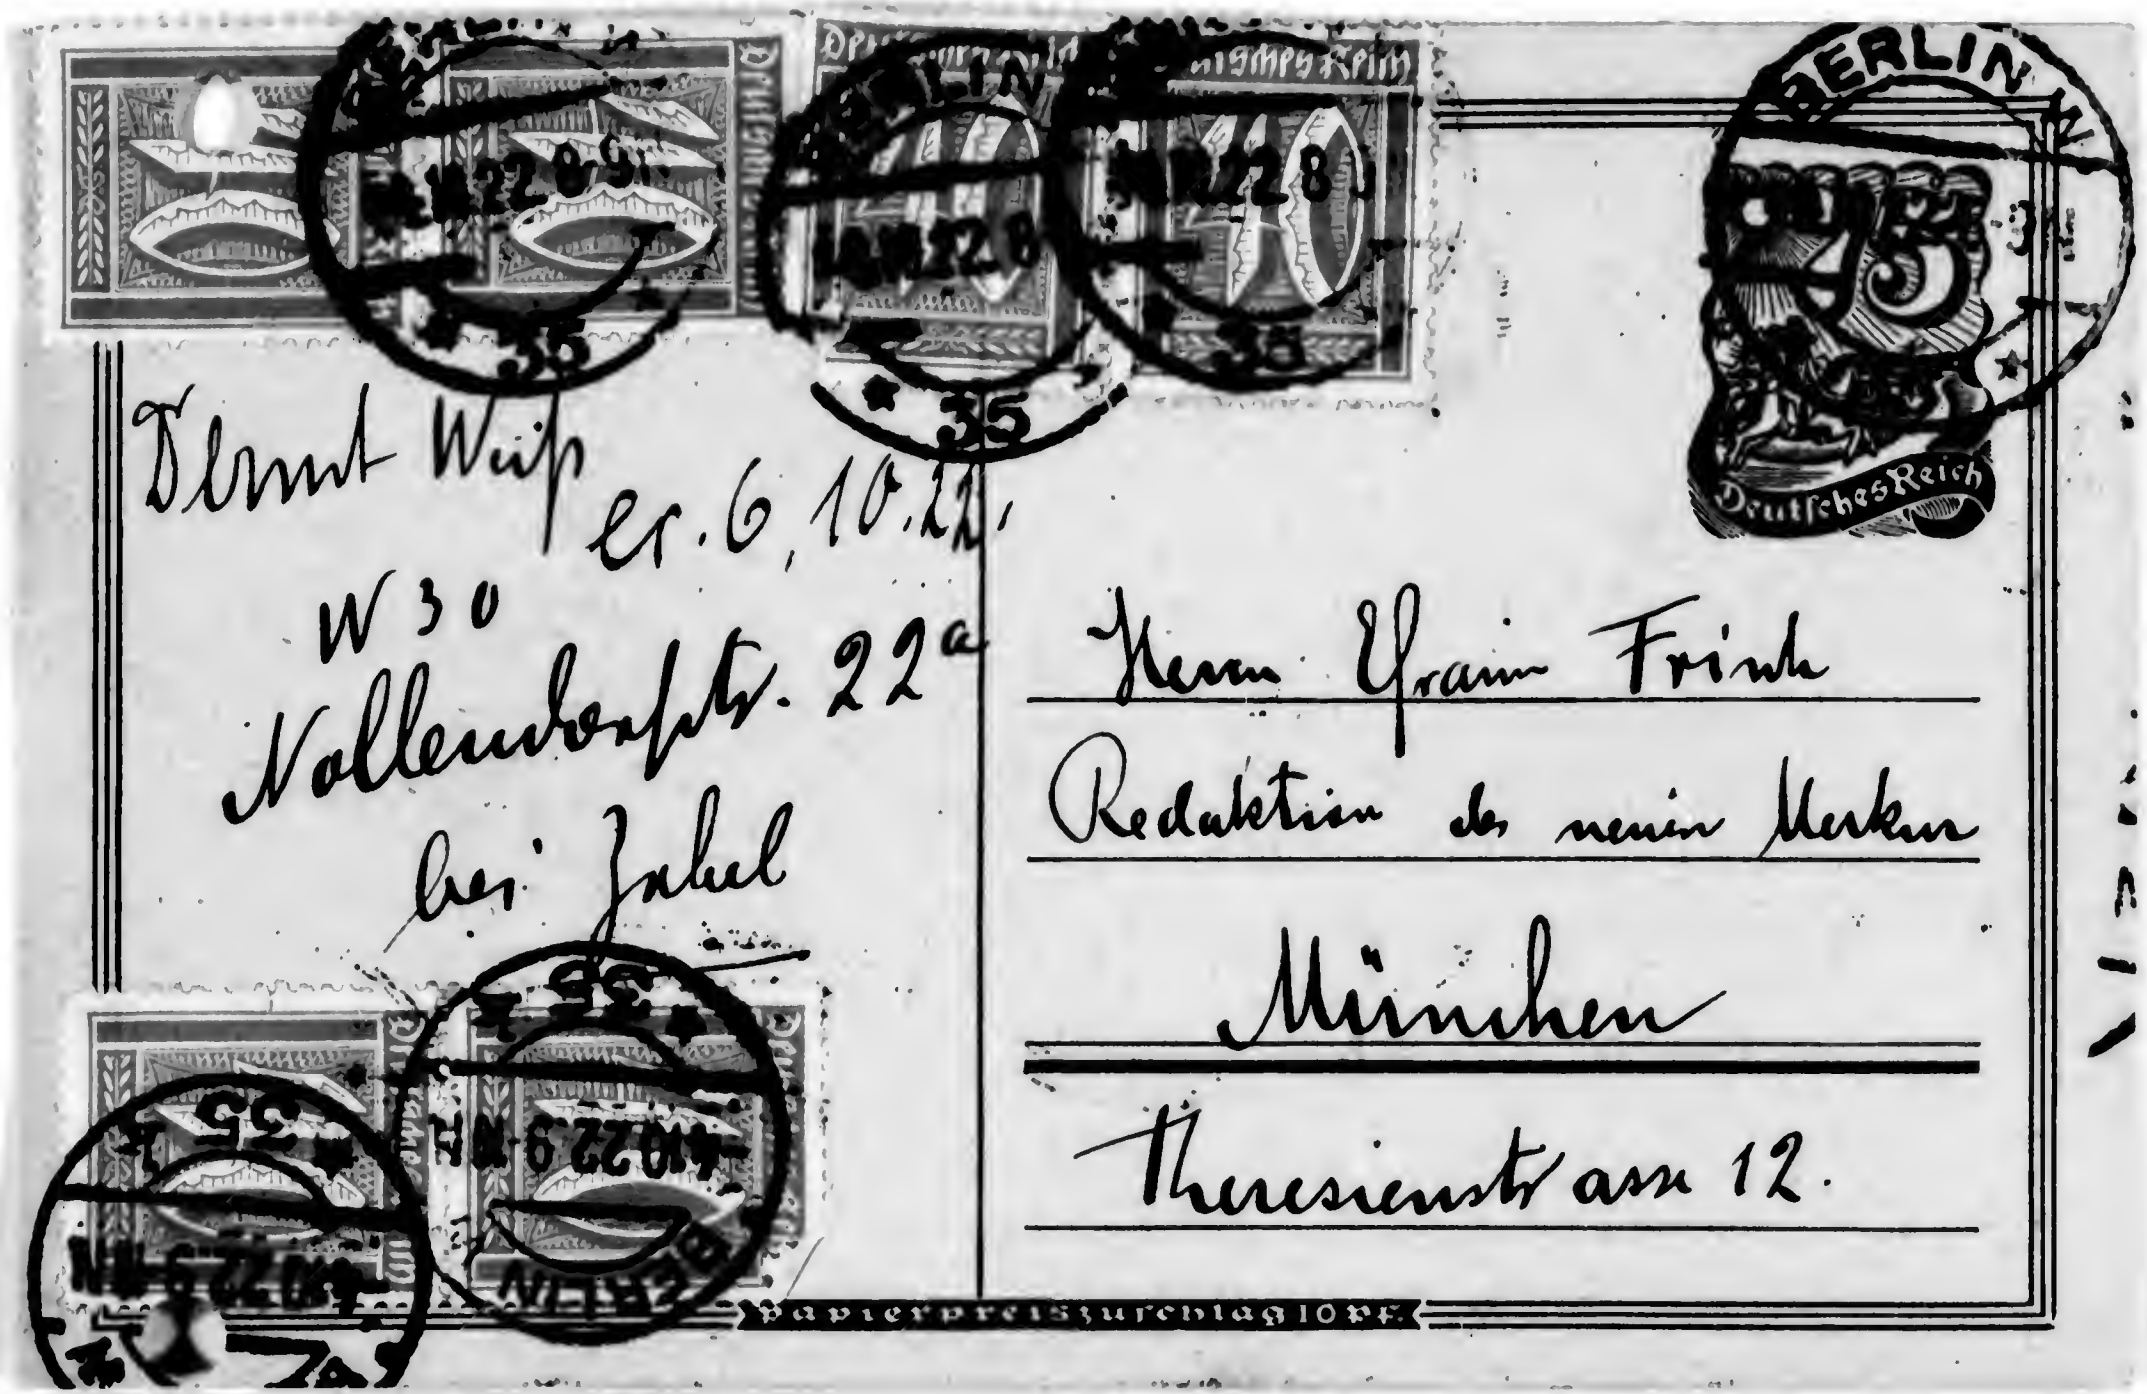 Deutsches Reich
BERLIN
35
BERLIN W
35
35
5
Deutsches Reich
Weiß
er. 6.10.22.
W 30
Nollendorfstr. 22a
bei Zabel
Herrn Efraim Frisch
Redaktion des neuen Merkur
München
Theresienstrasse 12.
35
4.10.22.9-10 N.
BERLIN
35
Papierpreiszuschlag 10 Pf.